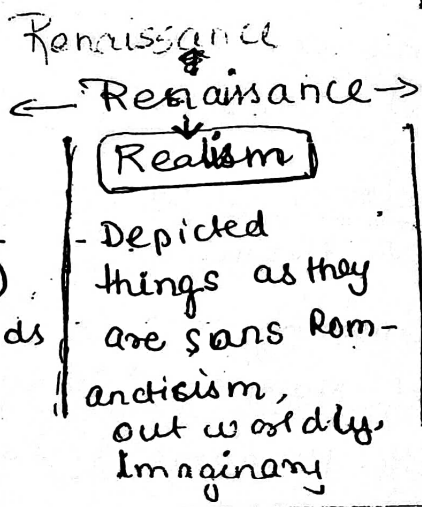 Renaissance
← Renaissance →
↓
Realism
- Depicted
things as they
ds are sans Rom-
anctisism,
out worldly,
Imaginary